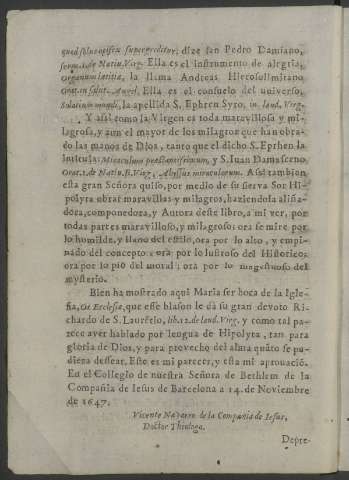 quod solus opifex supergreditur; dize san Pedro Damiano,
serm. 1. de Nativ. Virg. Ella es el instrumento de alegria,
Organum lætitiæ, la llama Andreas Hierosolimitano
Orat. in salut. Angel. Ella es el consuelo del universo,
Solatium mundi, la apellida S. Ephren Syro, in. laud. Virg.
Y assi como la Virgen es toda maravillosa y mi-
lagrosa, y aun el mayor de los milagros que han obra-
do las manos de Dios, tanto que el dicho S. Eprhen la
intitula: Miraculum præstantissimum, y S. Iuan Damasceno.
Orat. 1. de Nativ. B. Virg, Abyssus miraculorum. Assi tambien
esta gran Señora quiso, por medio de su serva Sor Hi-
polyta obrar maravillas y milagros, haziendola aliña-
dora, componedora, y Autora deste libro, a mi ver, por
todas partes maravilloso, y milagroso: ora se mire por
lo humilde, y llano del estilo, ora por lo alto, y empi-
nado del concepto: ora por lo lustroso del Historico:
ora por lo pio del moral: ora por lo magestuoso del
mysterio.
Bien ha mostrado aqui Maria ser boca de la Igle-
sia, Os Ecclesiæ, que esse blason le dà su gran devoto Ri-
chardo de S. Laurẽtio, lib. 12. de laud. Virg. y como tal pa-
rece aver hablado por lengua de Hipolyta, tan para
gloria de Dios, y para provecho del alma quãto se pu-
diera dessear. Este es mi parecer, y esta mi aprovació.
En el Collegio de nuestra Señora de Bethlem de la
Compañia de Iesus de Barcelona a 14. de Noviembre
de 1647.
Vicente Navarro de la Compañia de Iesus,
Doctor Theologo.
Depre-